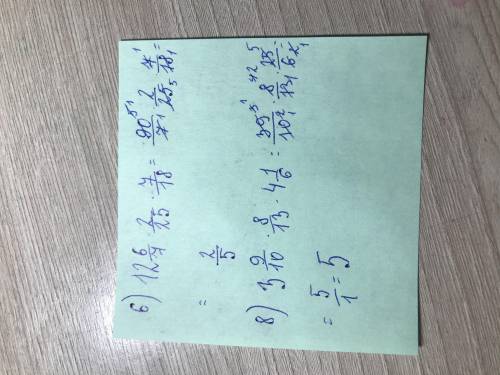 6) 12 6/7 · 2/25 · 7/18 = 90/7 · 2/25 · 7/18 =
= 2/5
8) 3 9/10 · 8/13 · 4 1/6 = 39/10 · 8/13 · 25/6 =
= 5/1 = 5